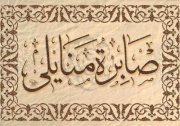 صابرة منايلى